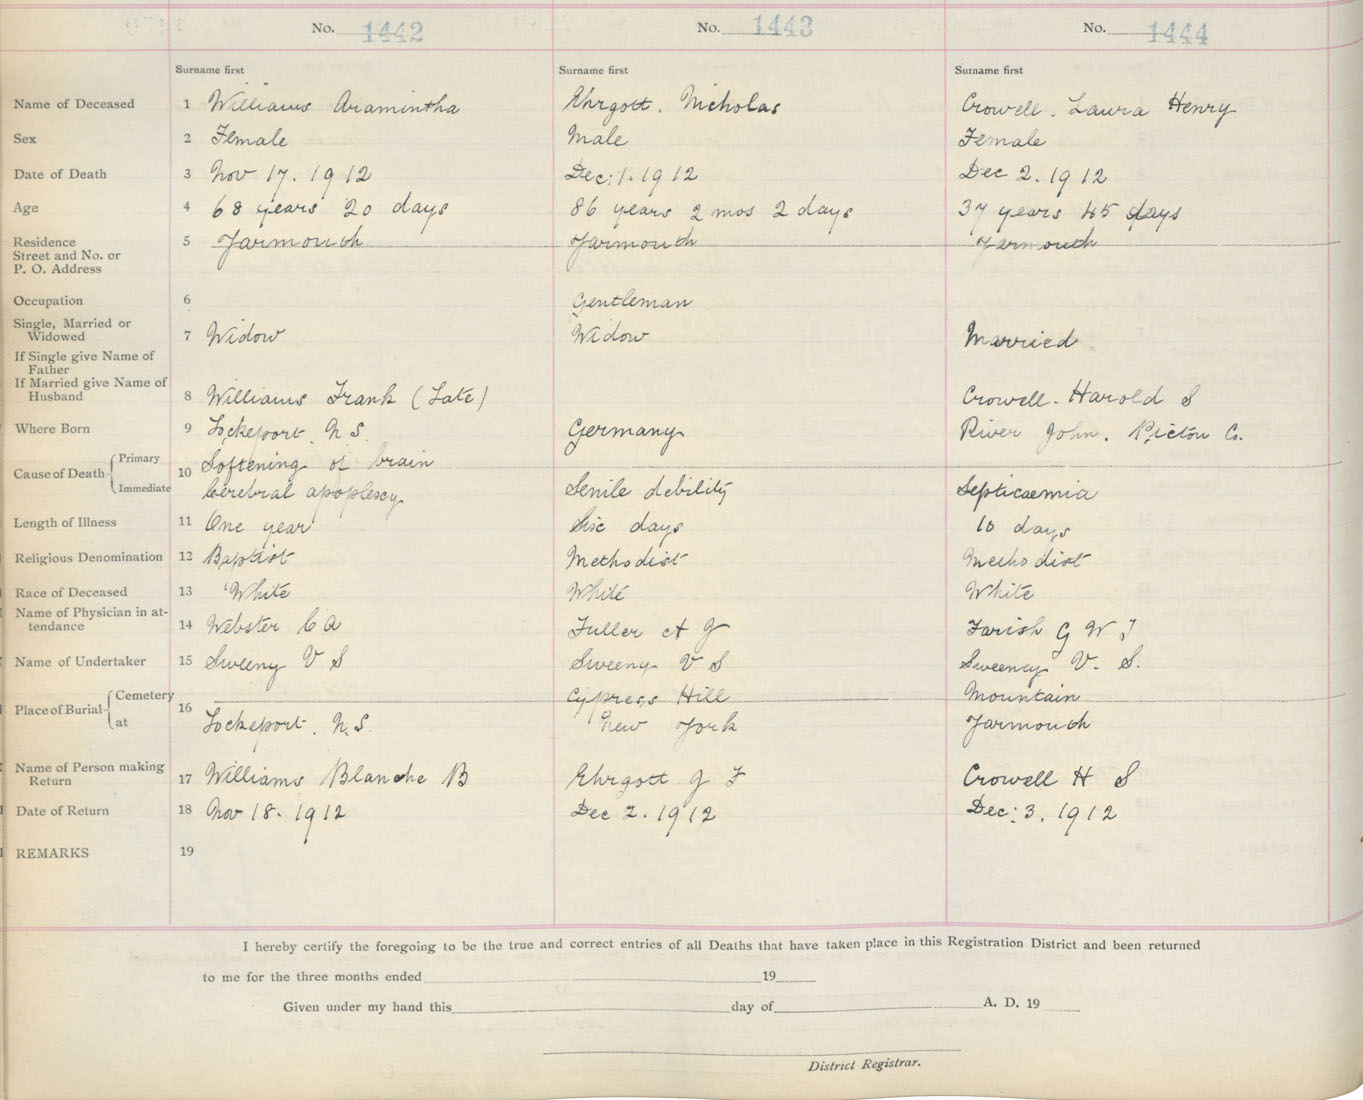 No. 1442 No. 1443 No. 1444
Surname first Surname first Surname first
Name of Deceased 1 Williams Aramintha Ehrgott. Nicholas Crowell. Laura Henry
Sex 2 Female Male Female
Date of Death 3 Nov 17. 1912 Dec: 1. 1912 Dec 2. 1912
Age 4 68 years 20 days 86 years 2 mos 2 days 37 years 45 days
Residence 5 Yarmouth Yarmouth Yarmouth
Street and No. or
P. O. Address
Occupation 6 Gentleman
Single, Married or
Widowed 7 Widow Widow Married
If Single give Name of
Father
If Married give Name of
Husband 8 Williams Frank (Late) Crowell. Harold S
Where Born 9 Lockeport. N.S. Germany River John. Pictou Co.
Cause of Death Primary 10 Softening of brain
Immediate Cerebral apoplexy Senile debility Septicaemia
Length of Illness 11 One year Six days 10 days
Religious Denomination 12 Baptist Methodist Methodist
Race of Deceased 13 White White White
Name of Physician in at-
tendance 14 Webster C A Fuller A J Farish G W T
Name of Undertaker 15 Sweeny V S Sweeny V S Sweeney V. S.
Place of Burial Cemetery 16 Cypress Hill Mountain
at Lockeport. N.S. New York Yarmouth
Name of Person making
Return 17 Williams Blanche B Ehrgott J F Crowell H S
Date of Return 18 Nov 18. 1912 Dec 2. 1912 Dec: 3. 1912
REMARKS 19
I hereby certify the foregoing to be the true and correct entries of all Deaths that have taken place in this Registration District and been returned
to me for the three months ended 19
Given under my hand this day of A. D. 19
District Registrar.